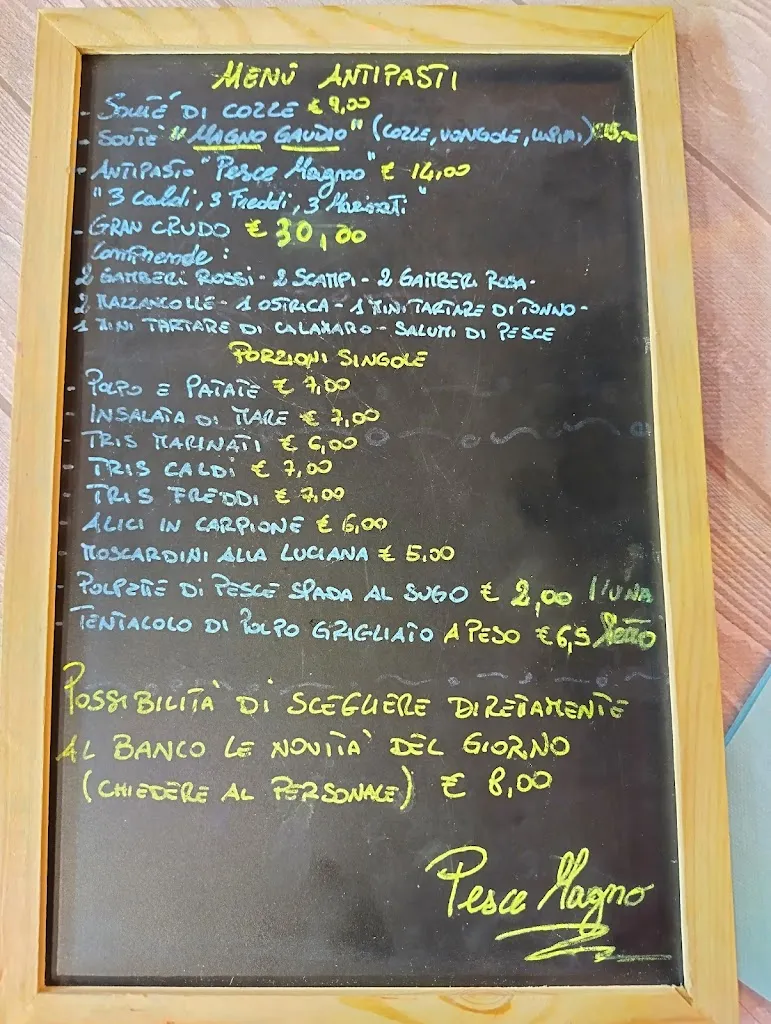 MENÙ ANTIPASTI
- SOUTÉ DI COZZE € 9,00
- SOUTÉ "MAGNO GAUDIO" (COZZE, VONGOLE, LUPINI) €15,00
- ANTIPASTO "Pesce Magno" € 14,00
"3 Caldi, 3 Freddi, 3 Marinati"
- GRAN CRUDO € 30,00
Comprende :
2 GAMBERI ROSSI - 2 SCAMPI - 2 GAMBERI ROSA -
2 MAZZANCOLLE - 1 OSTRICA - 1 MINI TARTARE DI TONNO -
1 MINI TARTARE DI CALAMARO - SALUMI DI PESCE
PORZIONI SINGOLE
- POLPO E PATATE € 7,00
- INSALATA DI MARE € 7,00
- TRIS MARINATI € 6,00
- TRIS CALDI € 7,00
- TRIS FREDDI € 7,00
- ALICI IN CARPIONE € 6,00
- MOSCARDINI ALLA LUCIANA € 5,00
- POLPETTE DI PESCE SPADA AL SUGO € 2,00 l'UNA
- TENTACOLO DI POLPO GRIGLIATO A PESO € 6,5 l'etto
POSSIBILITÀ DI SCEGLIERE DIRETAMENTE
AL BANCO LE NOVITÀ DEL GIORNO
(CHIEDERE AL PERSONALE) € 8,00
Pesce Magno